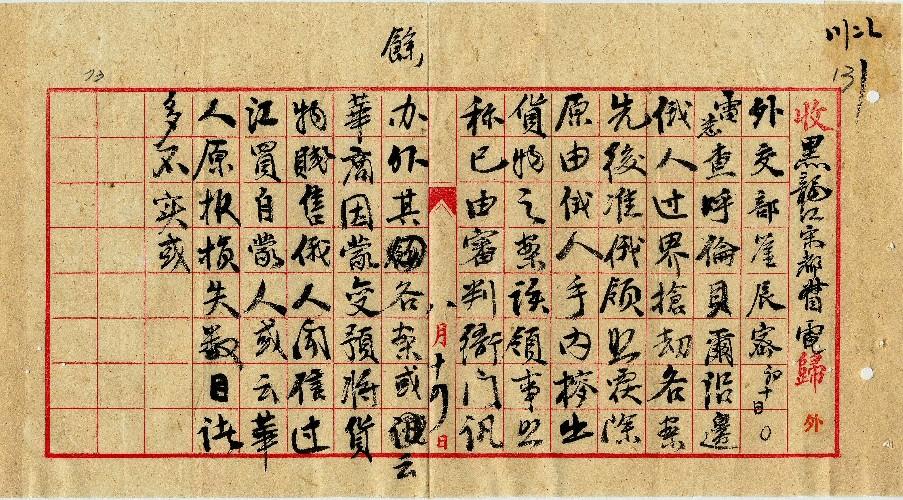 收黑龍江宋都督電歸
外
外交部崖辰密初十日
電悉查呼倫貝爾沿邊
俄人过界搶劫各案
先後准俄領照震除
原由俄人手内搾出
貨物之案該領事照
称已由審判衙门訊
八月十四日
办外其餘各案或云
華商因蒙变預將貨
物賤售俄人閣隺过
江買自蒙人或云華
人原报損失数目诸
多不实或
餘
131
73